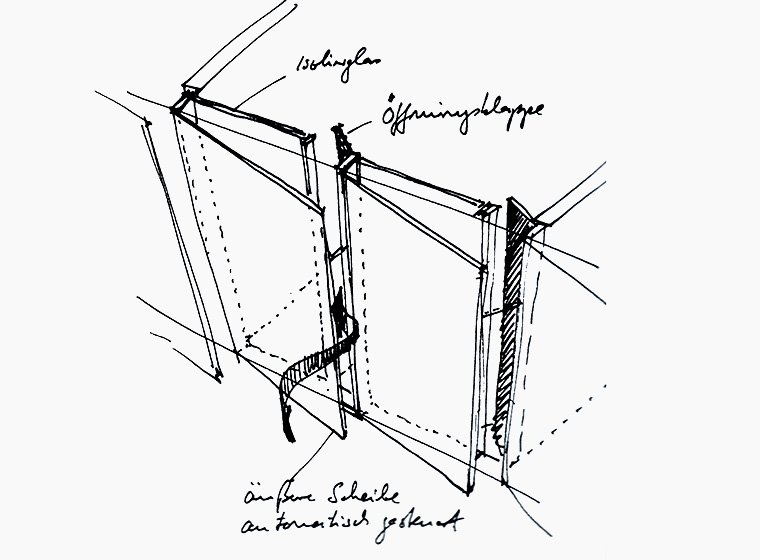 Isolierglas
Öffnungsklappe
äußere Scheibe
automatisch gesteuert